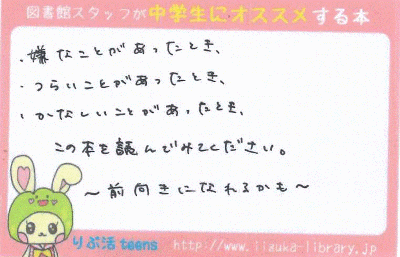 図書館スタッフが中学生にオススメする本
・嫌なことがあったとき、
・つらいことがあったとき、
・かなしいことがあったとき、
この本を読んでみてください。
～前向きになれるかも～
りぶ活teens http://www.iizuka-library.jp